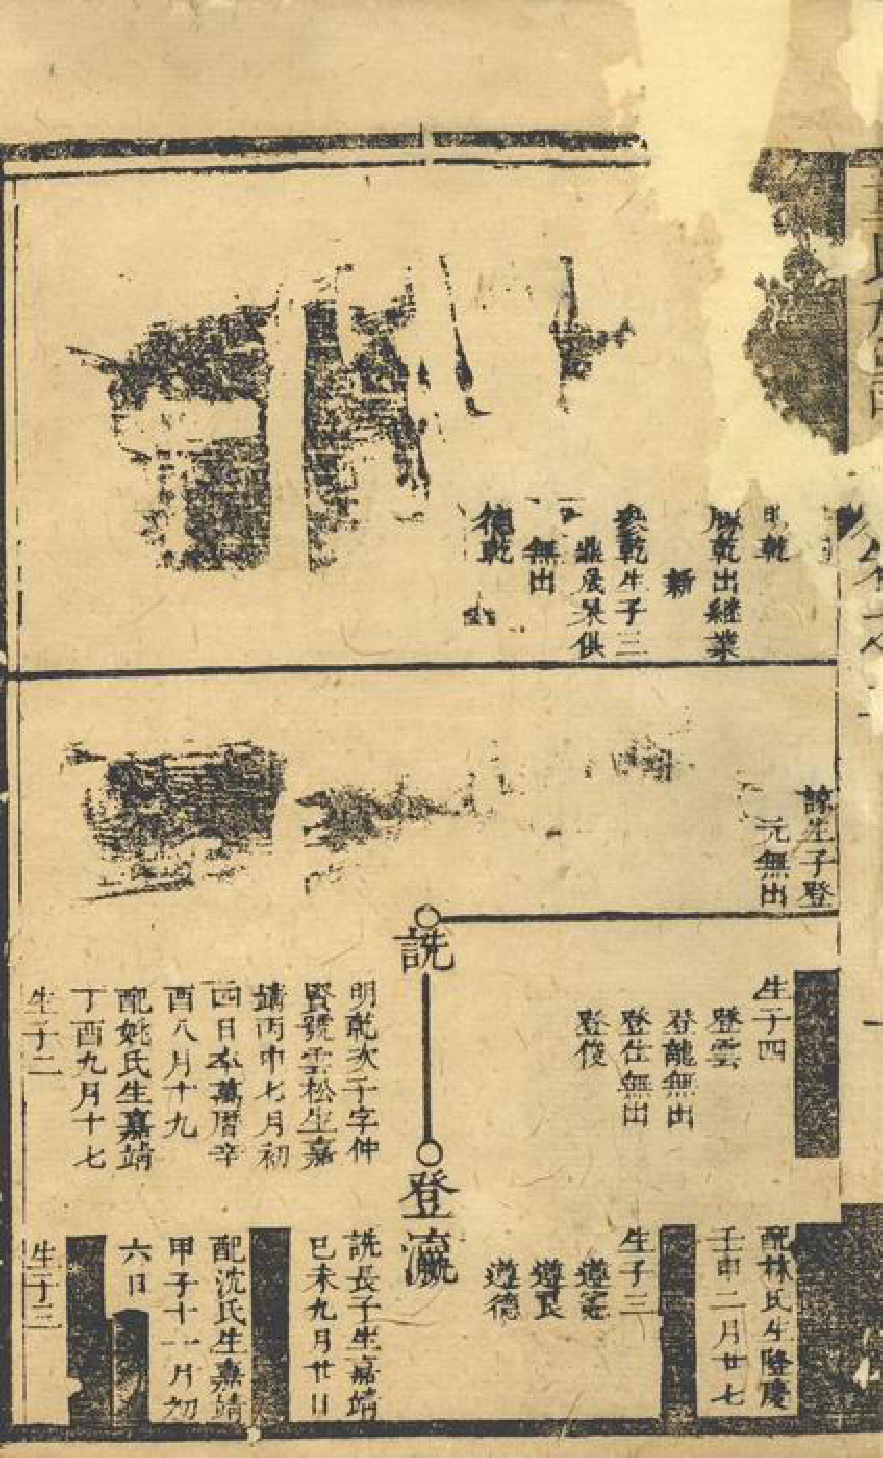 乾
勝乾出繼業
新
乾生子三
鼎晟杲俱
無出
德乾
諒生子登
元無出
生子四
登雲
登龍無出
登仕無出
登俊
配林氏生隆慶
壬申二月廿七
生子三
遵憲
遵良
遵德
詵
登瀛
明乾次子字仲
賢號雲松生嘉
靖丙申七月初
四日卒萬曆辛
酉八月十九
配姚氏生嘉靖
丁酉九月十七
生子二
詵長子生嘉靖
己未九月廿日
配沈氏生嘉靖
甲子十一月初
六日
生子三